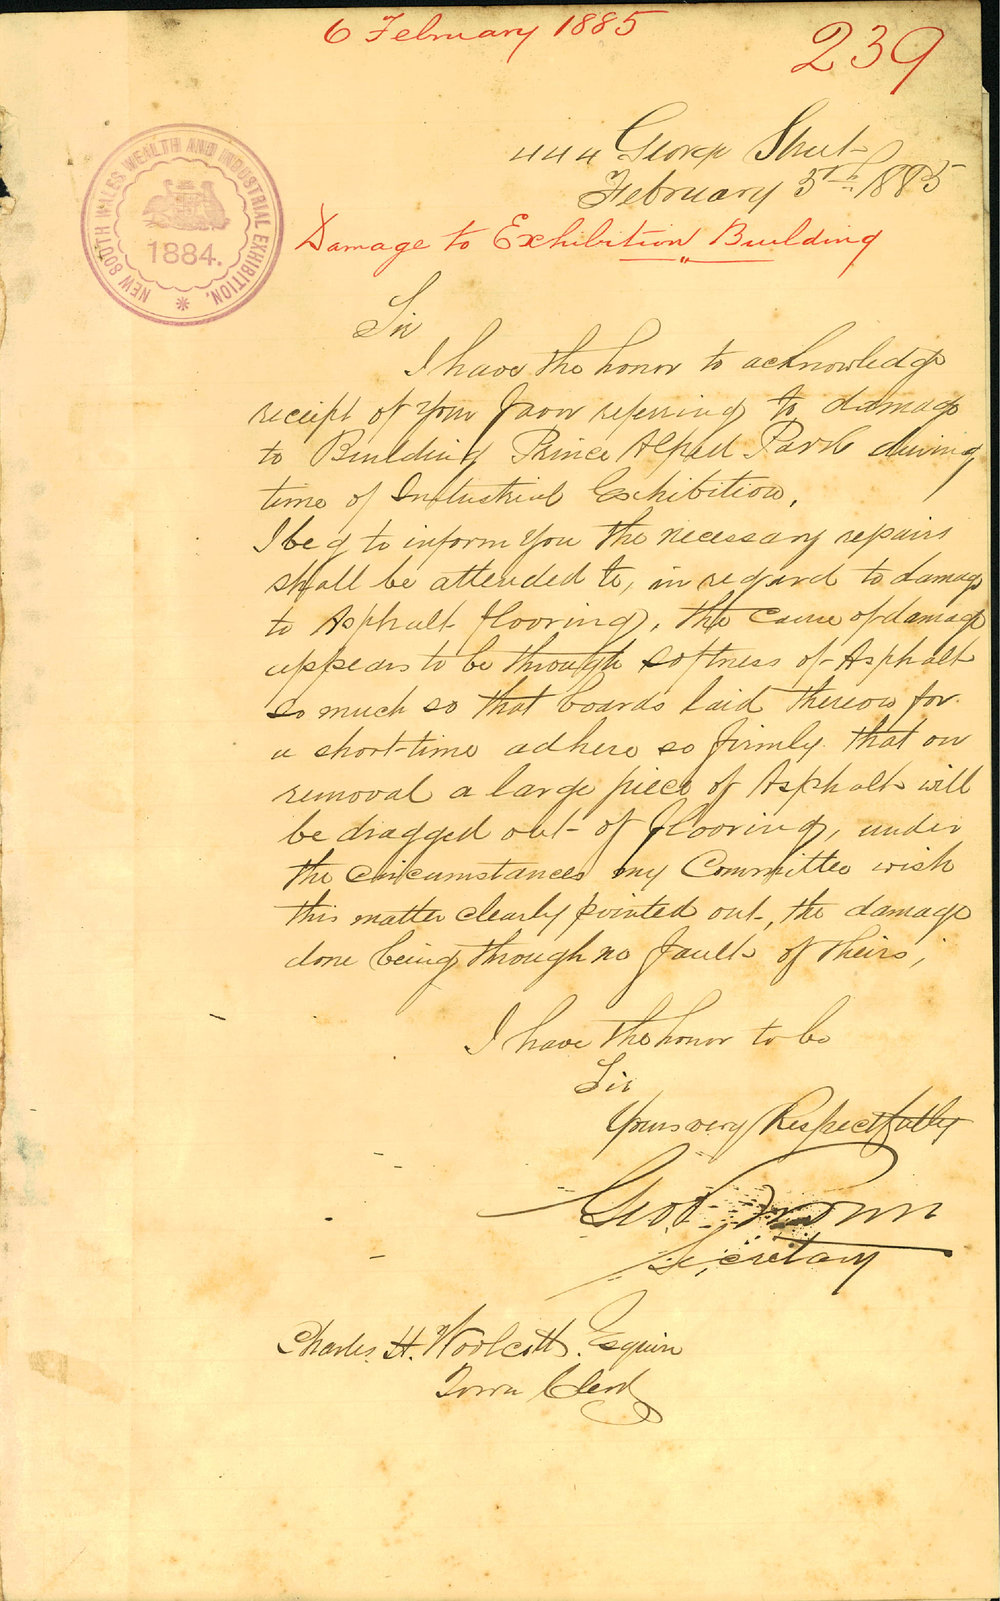 6 February 1885
239
444 George Street
February 5th 1885
NEW SOUTH WALES, WEALTH AND INDUSTRIAL EXHIBITION.
1884.
Damage to Exhibition Building
Sir
I have the honor to acknowledge
receipt of your favor referring to damage
to Building Prince Alfred Park during
time of Industrial Exhibition.
I beg to inform you the necessary repairs
shall be attended to, in regard to damage
to Asphalt flooring, the cause of damage
appears to be through softness of Asphalt
so much so that boards laid thereon for
a short time adhere so firmly that on
removal a large piece of Asphalt will
be dragged out of flooring, under
the circumstances my Committee wish
this matter clearly pointed out, the damage
done being through no fault of theirs,
I have the honor to be
Sir
Yours very Respectfully
Geo
Secretary
Charles H. Woolcott. Esquire
Town Clerk